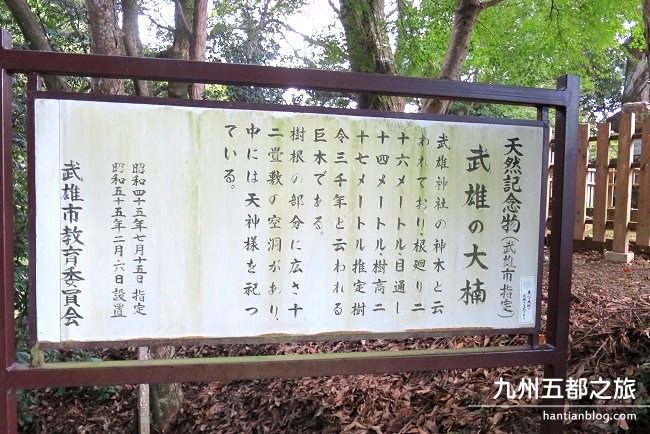 天然記念物(武雄市指定)
武雄の大楠
武雄神社の神木と云
われており、根廻り二
十六メートル・目通し
十四メートル・樹高二
十七メートル推定樹
令三千年と云われる
巨木である。
樹根の部分に広さ十
二畳敷の空洞があり、
中には天神様を祀っ
ている。
昭和四十五年七月十五日 指定
昭和五十五年二月六日 設置
武雄市教育委員会
九州五都之旅
hantianblog.com